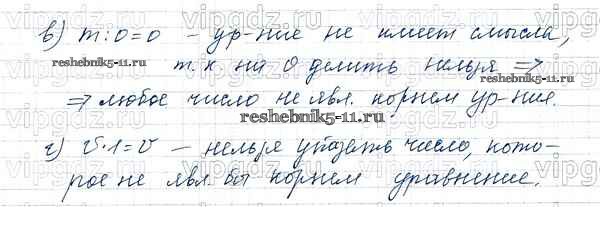 в) m:0=0 – ур-ние не имеет смысла,
т.к на 0 делить нельзя ⇒
⇒ любое число не явл. корнем ур-ния.
reshebnik5-11.ru
reshebnik5-11.ru
reshebnik5-11.ru
г) v·1=v – нельзя указать число, кото-
рое не явл. бы корнем уравнение.
vipgdz.ru